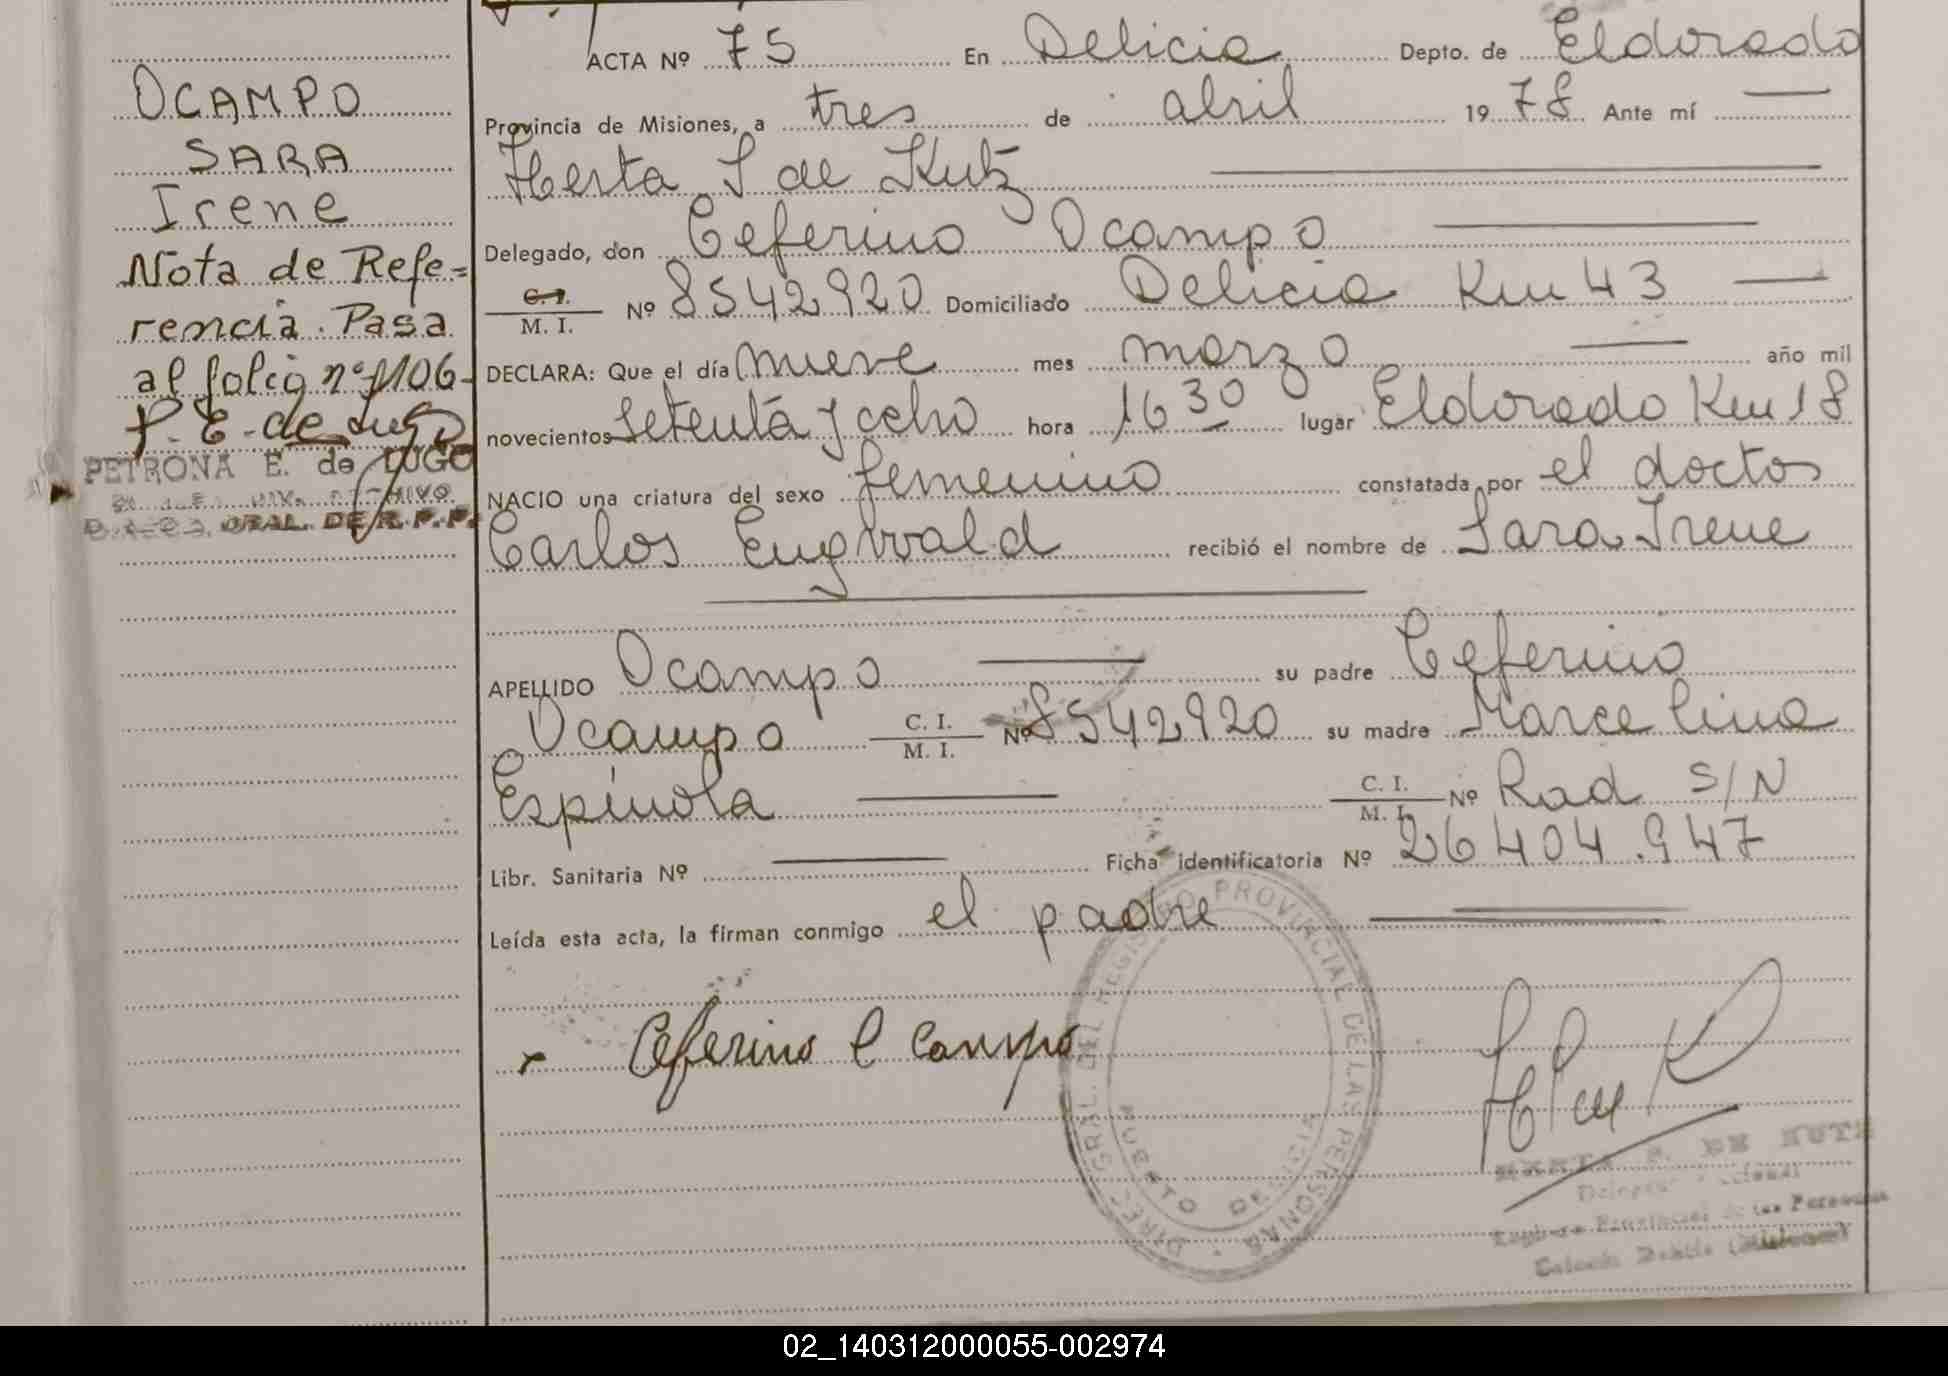 OCAMPO
SARA
Irene
Nota de Refe=
rencia. Pasa
al folio nº 1106-
P. E. de Lugo
PETRONA E. de LUGO
GRAL. DE R. P. P.
ACTA Nº 75 En Delicia Depto. de Eldorado
Provincia de Misiones, a tres de abril 1978 Ante mí
Herta S de Kutz
Delegado, don Ceferino Ocampo
C. I.
M. I. Nº 8542920 Domiciliado Delicia Km 43
DECLARA: Que el día nueve mes marzo año mil
novecientos setenta y ocho hora 16 30 lugar Eldorado Km 18
NACIO una criatura del sexo femenino constatada por el doctor
Carlos Engwald recibió el nombre de Sara Irene
APELLIDO Ocampo su padre Ceferino
Ocampo C. I. M. I. Nº 8542920 su madre Marcelina
Espínola C. I. M. I. Nº Rad S/N
Libr. Sanitaria Nº Ficha identificatoria Nº 26404.947
Leída esta acta, la firman conmigo el padre
Ceferino Ocampo
DIREC. GRAL. DEL REGISTRO PROVINCIAL DE LAS PERSONAS
DE KUTZ